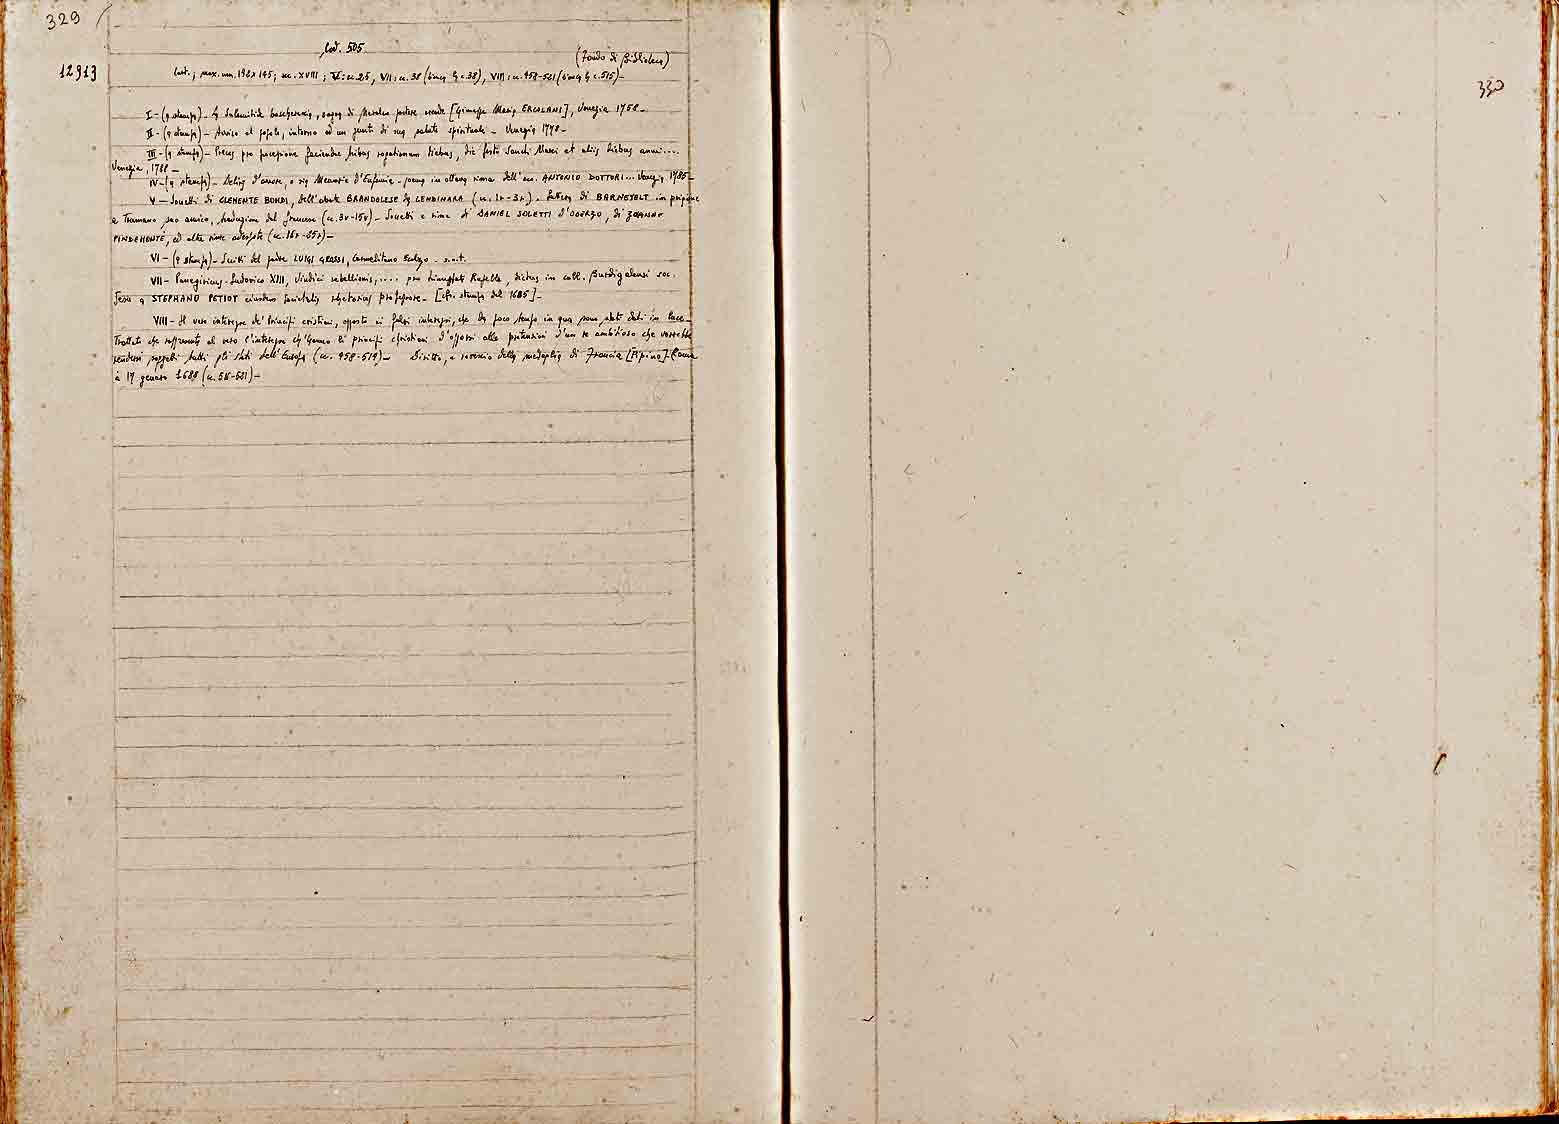 329
Cod. 505
(Fondo di Biblioteca)
12913
Cart.; mm. 192x145; sec. XVIII; V: cc. 25, VII: cc. 38 (bianca la c. 38), VIII: cc. 458-521 (bianca la c. 515)-
I - (a stampa) - La boschereccia, di Neralco pastore arcade [Giuseppe Maria ERCOLANI], Venezia 1758 -
II - (a stampa) - Avviso al popolo, intorno ad un punto di sua salute spirituale - Venezia 1770 -
III - (a stampa) - Preces pro processione facienda tribus rogationum diebus, die festo Sancti Marci et aliis diebus anni....
Venezia, 1788 -
IV - (a stampa) - Delirj d'amore, o sia Memorie d'Eufemia - poema in ottava rima dell'ecc. ANTONIO DOTTORI... Venezia 1785 -
V - Sonetti di CLEMENTE BONDI, dell'abate BRANDOLESE da LENDINARA (cc. 1r-3r). Lettera di BARNEVELT in prigione
a Trumano suo amico, traduzione dal francese (cc. 3v-15v) - Sonetti e rime di DANIEL SOLETTI d'ODERZO, di
PINDEMONTE, ed altre rime adespote (cc. 16r-25r) -
VI - (a stampa) - Scritti del padre LUIGI GROSSI, Carmelitano Scalzo - s.n.t.
VII - Panegiricus Ludovico XIII, vindici rebellionis,.... pro triumphata Rupella, dictus in coll. Burdigalensi soc.
Jesu a STEPHANO PETIOT eiusdem societatis professore - [cfr. stampa del 1685] -
VIII - Il vero interesse de' Principi cristiani, opposto ai falsi interessi, che da poco tempo in qua sono stati dati in luce -
Trattati che rappresenta al vero l'interesse ch'hanno li principi christiani d'opporsi alle pretensioni d'un re ambitioso che vorrebbe
rendersi soggetti tutti gli stati dell'Europa (cc. 458-514) - Diritto, e rovescio della medaglia di Francia [Pipino] - Roma
à 17 genaro 1688 (cc. 516-521) -
330